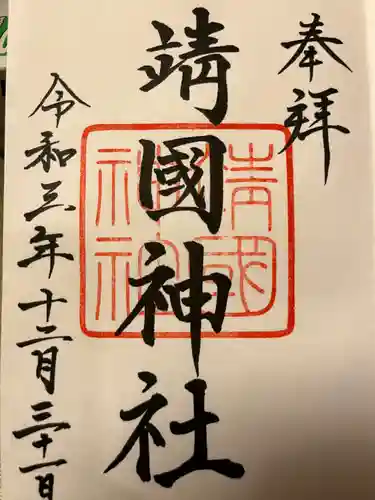 奉拝
靖國神社
靖國神社
令和三年十二月三十一日